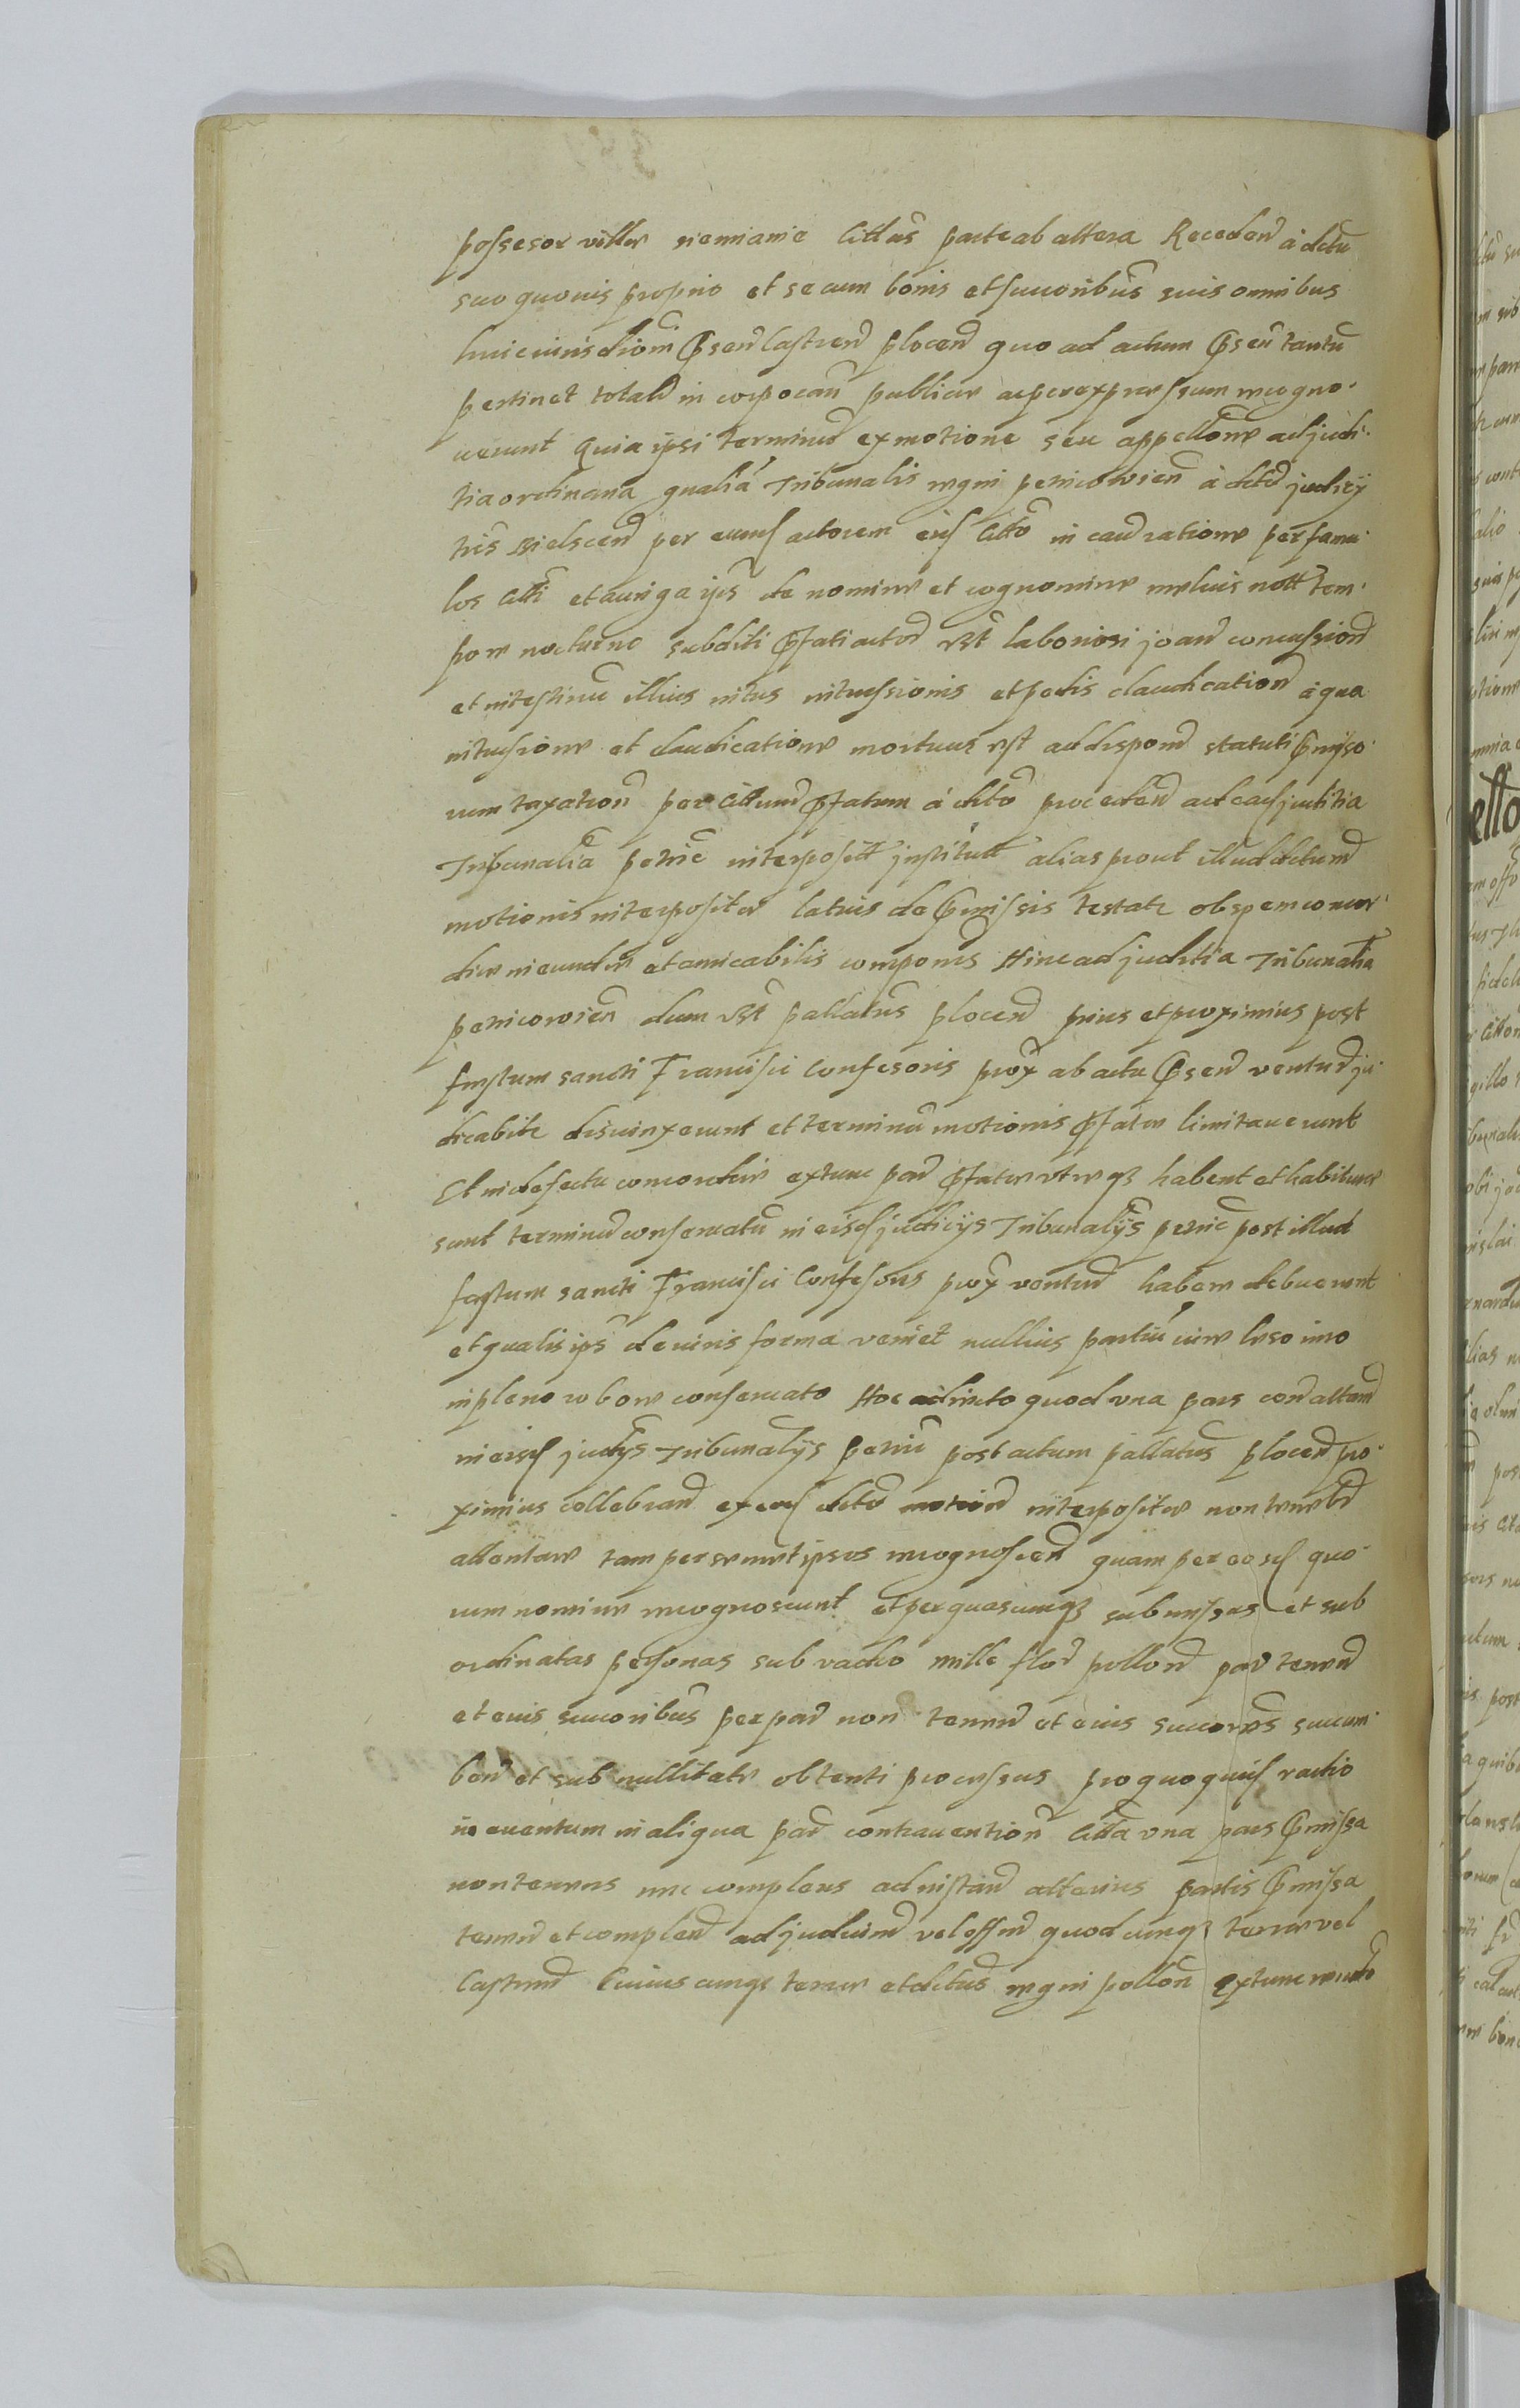 possesor villae niemianie Cittus parte ab altera Recedend a dctu
suo quouis proprio et se cum bonis et succoribus suis omnibus
huic iurisdioni Psen Castren plocen quo ad actum Psen tantu
pertinet totalr incorporan publice ac per expressum recogno
uerunt Quia ipsi terminu ex motione seu appellone ad judi
tia ordinaria gnalia Tribunalis regni peticowien a dcto judicy
tris Bielscen per eund actorem eid Citto in cau ratione per famu
los Citti et auriga ips de nomine et cognomine melius nott tem
pore nocturno subditi Pfati actor Rst laboriosi joan concussion
et intestinu illius intus intrussionis et pedis claudication a qua
intrusione et claudicatione mortuus est ad dispond statuti Pmisso
rum taxation per Cittum Pfatum a dcto proceden ad ead juditia
Tribunalia petric interposit institutt alias prout illud dctum
motionis interpositae latius de Pmissis testatr ob spem concor
diae ineundae et amicabilis componis Hinc ad juditia Tribunalia
petricowien dum Rst pallatus plocen prius et proximius post
festum sancti Francisci Confesoris prox ab actu Psen ventur ju
dicabitr disiunxerunt et terminu motionis Pfatae limitauerunt
Et in defectu concordiae extunc par Pfatae vtraeq habent et habiturae
sunt terminu conseruatu in eisd judicijs Tribunalijs petric post illud
festum sancti Francisci Confesoris prox ventur habere debuerunt
et qualis ips de iuris forma veniet nullius partiu iure leso imo
in pleno robore conseruato Hoc adiucto quod vna pars con altam
in eisd judijs Tribunalijs petric post actum pallatus plocen pro
ximius cellebrand ex ead dcto motion interpositae non tenebr
attentare tam per semet ipsos recognoscen quam per eosd quo
rum nomine recognoscunt et per quascunq submissas et sub
ordinatas personas sub vadio mille flor pollon par tenen
et eius succoribus per par non tenen et eius succores succum
ben et sub nullitate obtenti processus pro quoquid vadio
in euentum in aliqua par contrauention Citta vna pars Pmissa
non tenens nec complens ad instan alterius partis Pmissa
tenen et complen ad judicium vel offm quodcunq terrae vel
Castren Cuiuscunq terrae et dctus regni pollon extunc